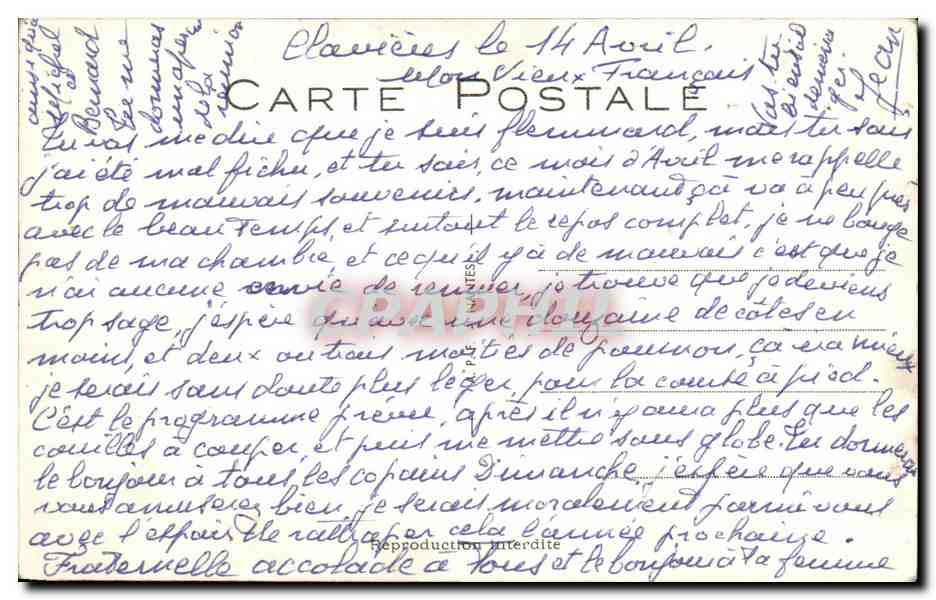 Clavières le 14 Avril.
Mon Vieux François
CARTE POSTALE
Tu vas me dire que je suis flemmard, mais tu sais
j'ai été mal fichu, et tu sais, ce mois d'Avril me rappelle
trop de mauvais souvenirs, maintenant çà va à peu près
avec le beau Temps, et surtout le repos complet, je ne bouge
pas de ma chambre et ce qu'il y a de mauvais c'est que je
n'ai aucune envie de remuer, je trouve que je deviens
trop sage, j'espère qu'avec une douzaine de côtes en
moins, et deux ou trois moitiés de poumon, ça ira mieux
je serais sans doute plus léger, pour la course à pied.
C'est le programme prévu, après il n'y aura plus que les
couilles à couper, et puis me mettre sous globe. Tu donneras
le bonjour à tous les copains Dimanche, j'espère que vous
vous amuserez bien, je serais moralement parmi vous
avec l'espoir de rattraper cela l'année prochaine.
Reproduction interdite
Fraternelle accolade à Tous et le bonjour à Ta femme
ainsi qu'à
Bernard
Tu me
donneras
un aperçu
de la
réunion
Vas tu
Jean
P.F. NANTES
CPAPHIL